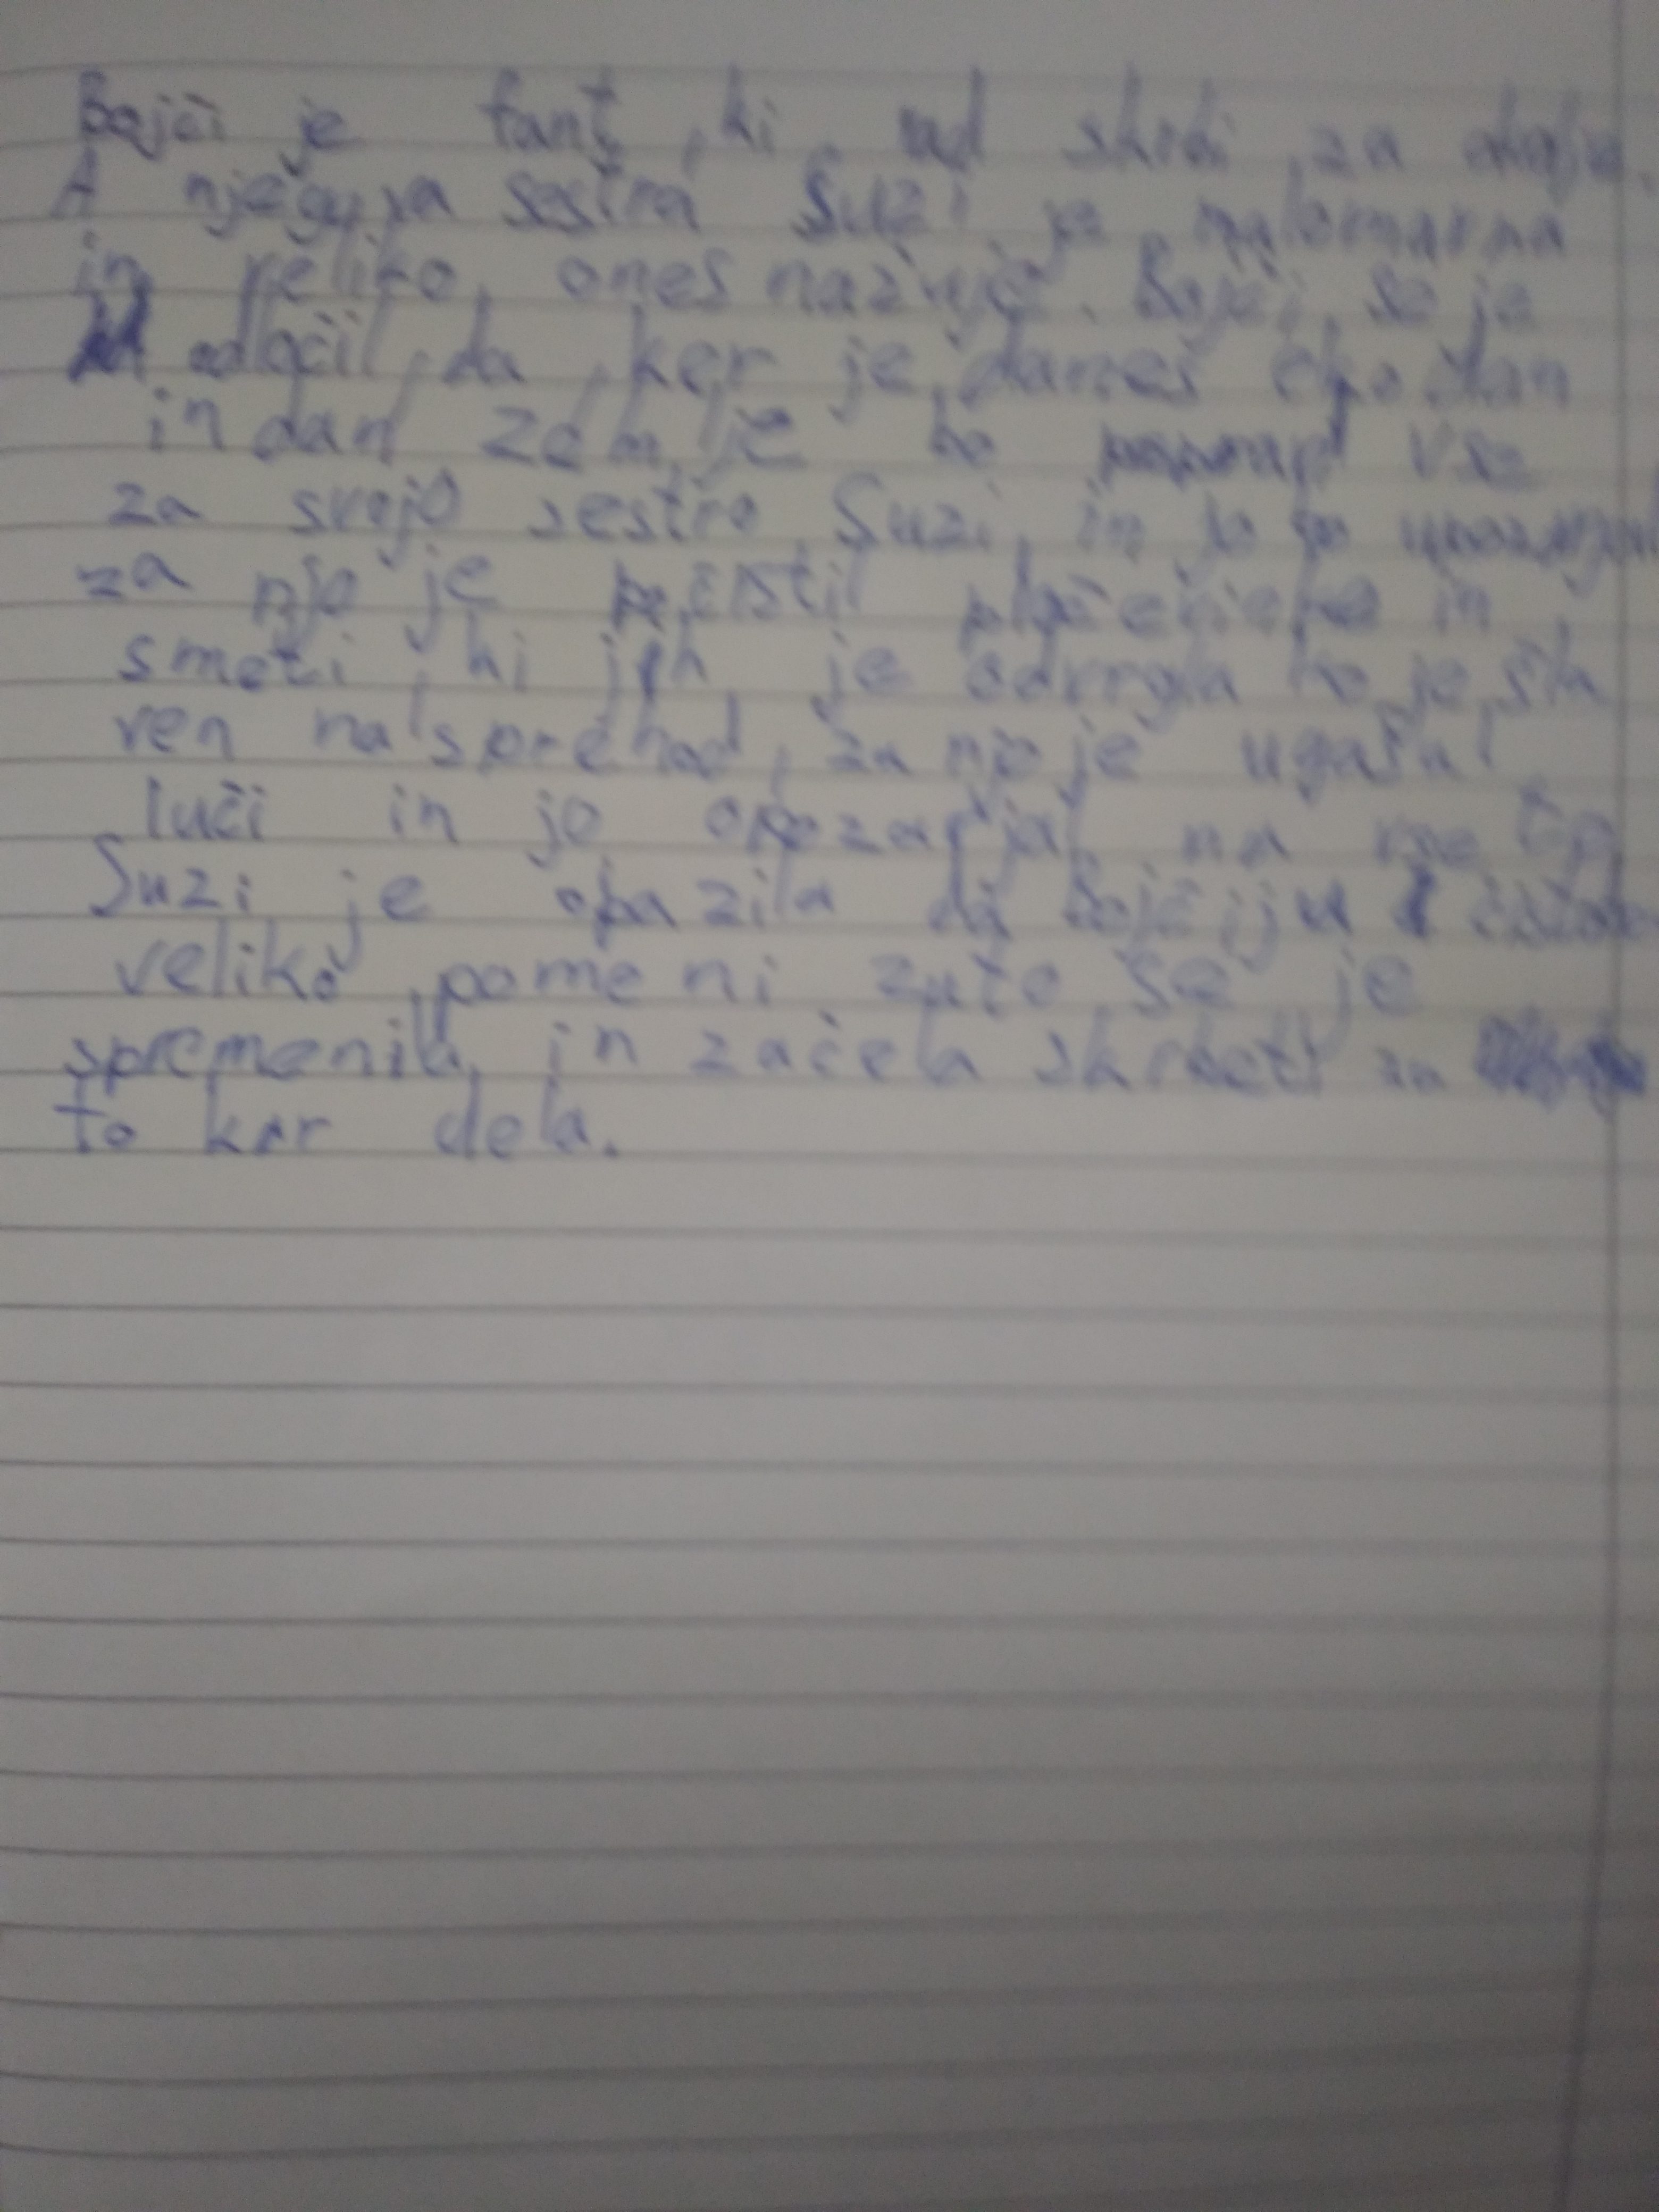 Bojči je fant, ki rad skrbi za okolje.
A njegova sestra Suzi je malomarna
in veliko onesnažuje. Bojči se je
odločil, da, ker je danes eko dan
in dan zemlje bo vse
za svojo sestro Suzi in jo bo
za njo je čistil in
smeti, ki jih je odvrgla ko je šla
ven na sprehod, za njo je ugašal
luči in jo opozarjal na vse to
Suzi je opazila da Bojčiju
veliko pomeni zato se je
spremenila in začela skrbeti za
to kar dela.